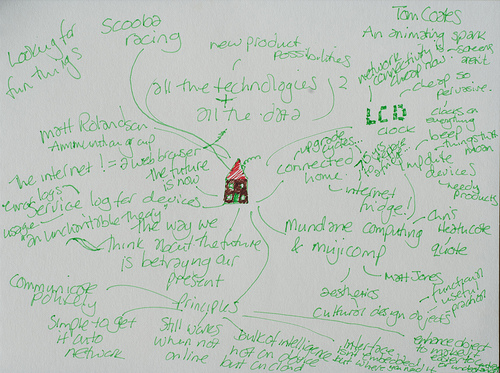 Looking for
fun things
Scooba
racing
new product
possibilities
all the technologies
+
all the data
2
Tom Coates
An animating spark
network
connectivity is
cheap now.
sensors
aren't
cheap so
pervasive.
LCD
clock
clocks on
everything
beep
things that
mean
upgrade
cycles...
connected
home
internet
fridge!
update
devices
needy
products
Matt Rolandson
Ammunition group
The internet != a web browser
the future
is now
email logs
service log for devices
usage
an uncontrollable thingery
The way we
think about the future
is betraying our
present
mundane computing
& mujicomp
Chris
Heathcote
quote
Matt Jones
aesthetics
cultural design objects
functional
useful
practical
communicate
politely
Principles
Simple to get
it onto
network
still works
when not
online
bulk of intelligence
not on device
but on cloud
interface
isn't embedded
but where you need it
enhance object
to make it
easier
or